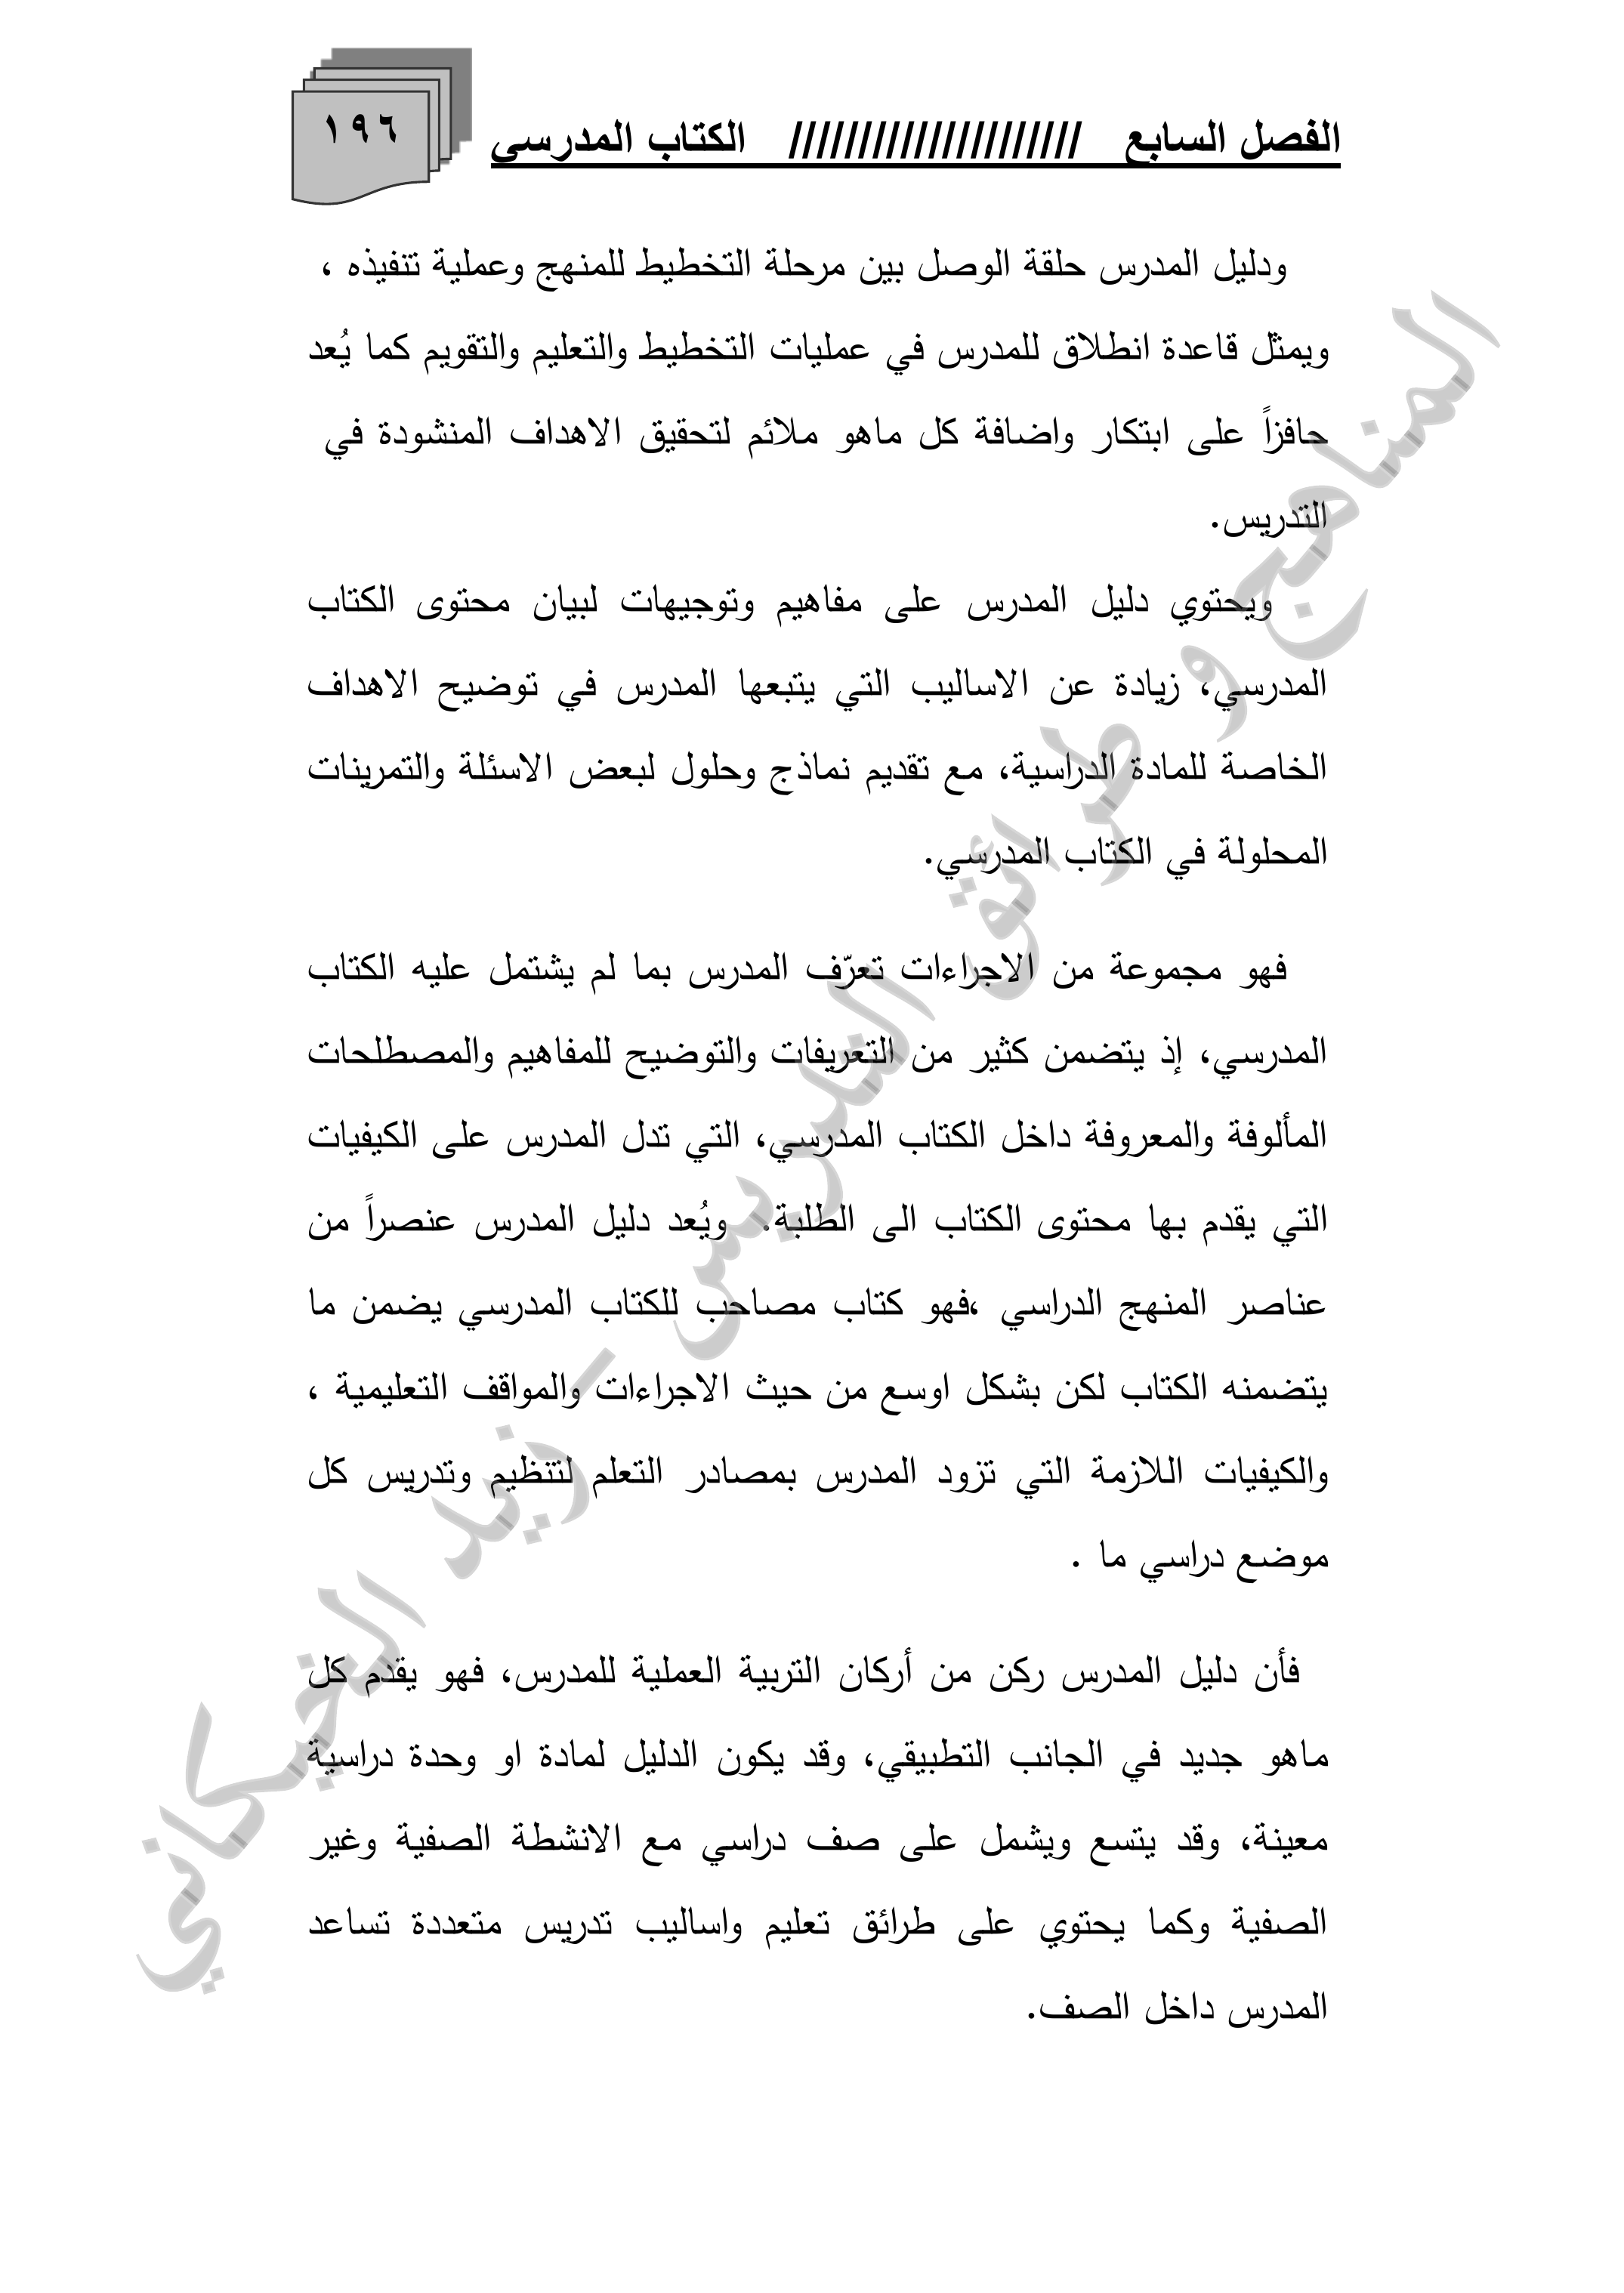 الفصل السابع ///////////////////// الكتاب المدرسي
١٩٦
ودليل المدرس حلقة الوصل بين مرحلة التخطيط للمنهج وعملية تنفيذه ،
ويمثل قاعدة انطلاق للمدرس في عمليات التخطيط والتعليم والتقويم كما يُعد
حافزاً على ابتكار واضافة كل ماهو ملائم لتحقيق الاهداف المنشودة في
التدريس.
ويحتوي دليل المدرس على مفاهيم وتوجيهات لبيان محتوى الكتاب
المدرسي، زيادة عن الاساليب التي يتبعها المدرس في توضيح الاهداف
الخاصة للمادة الدراسية، مع تقديم نماذج وحلول لبعض الاسئلة والتمرينات
المحلولة في الكتاب المدرسي.
فهو مجموعة من الاجراءات تعرّف المدرس بما لم يشتمل عليه الكتاب
المدرسي، إذ يتضمن كثير من التعريفات والتوضيح للمفاهيم والمصطلحات
المألوفة والمعروفة داخل الكتاب المدرسي، التي تدل المدرس على الكيفيات
التي يقدم بها محتوى الكتاب الى الطلبة. ويُعد دليل المدرس عنصراً من
عناصر المنهج الدراسي ،فهو كتاب مصاحب للكتاب المدرسي يضمن ما
يتضمنه الكتاب لكن بشكل اوسع من حيث الاجراءات والمواقف التعليمية ،
والكيفيات اللازمة التي تزود المدرس بمصادر التعلم لتنظيم وتدريس كل
موضع دراسي ما .
فأن دليل المدرس ركن من أركان التربية العملية للمدرس، فهو يقدم كل
ماهو جديد في الجانب التطبيقي، وقد يكون الدليل لمادة او وحدة دراسية
معينة، وقد يتسع ويشمل على صف دراسي مع الانشطة الصفية وغير
الصفية وكما يحتوي على طرائق تعليم واساليب تدريس متعددة تساعد
المدرس داخل الصف.
المناهج و طرائق التدريس – زيد الخيكاني